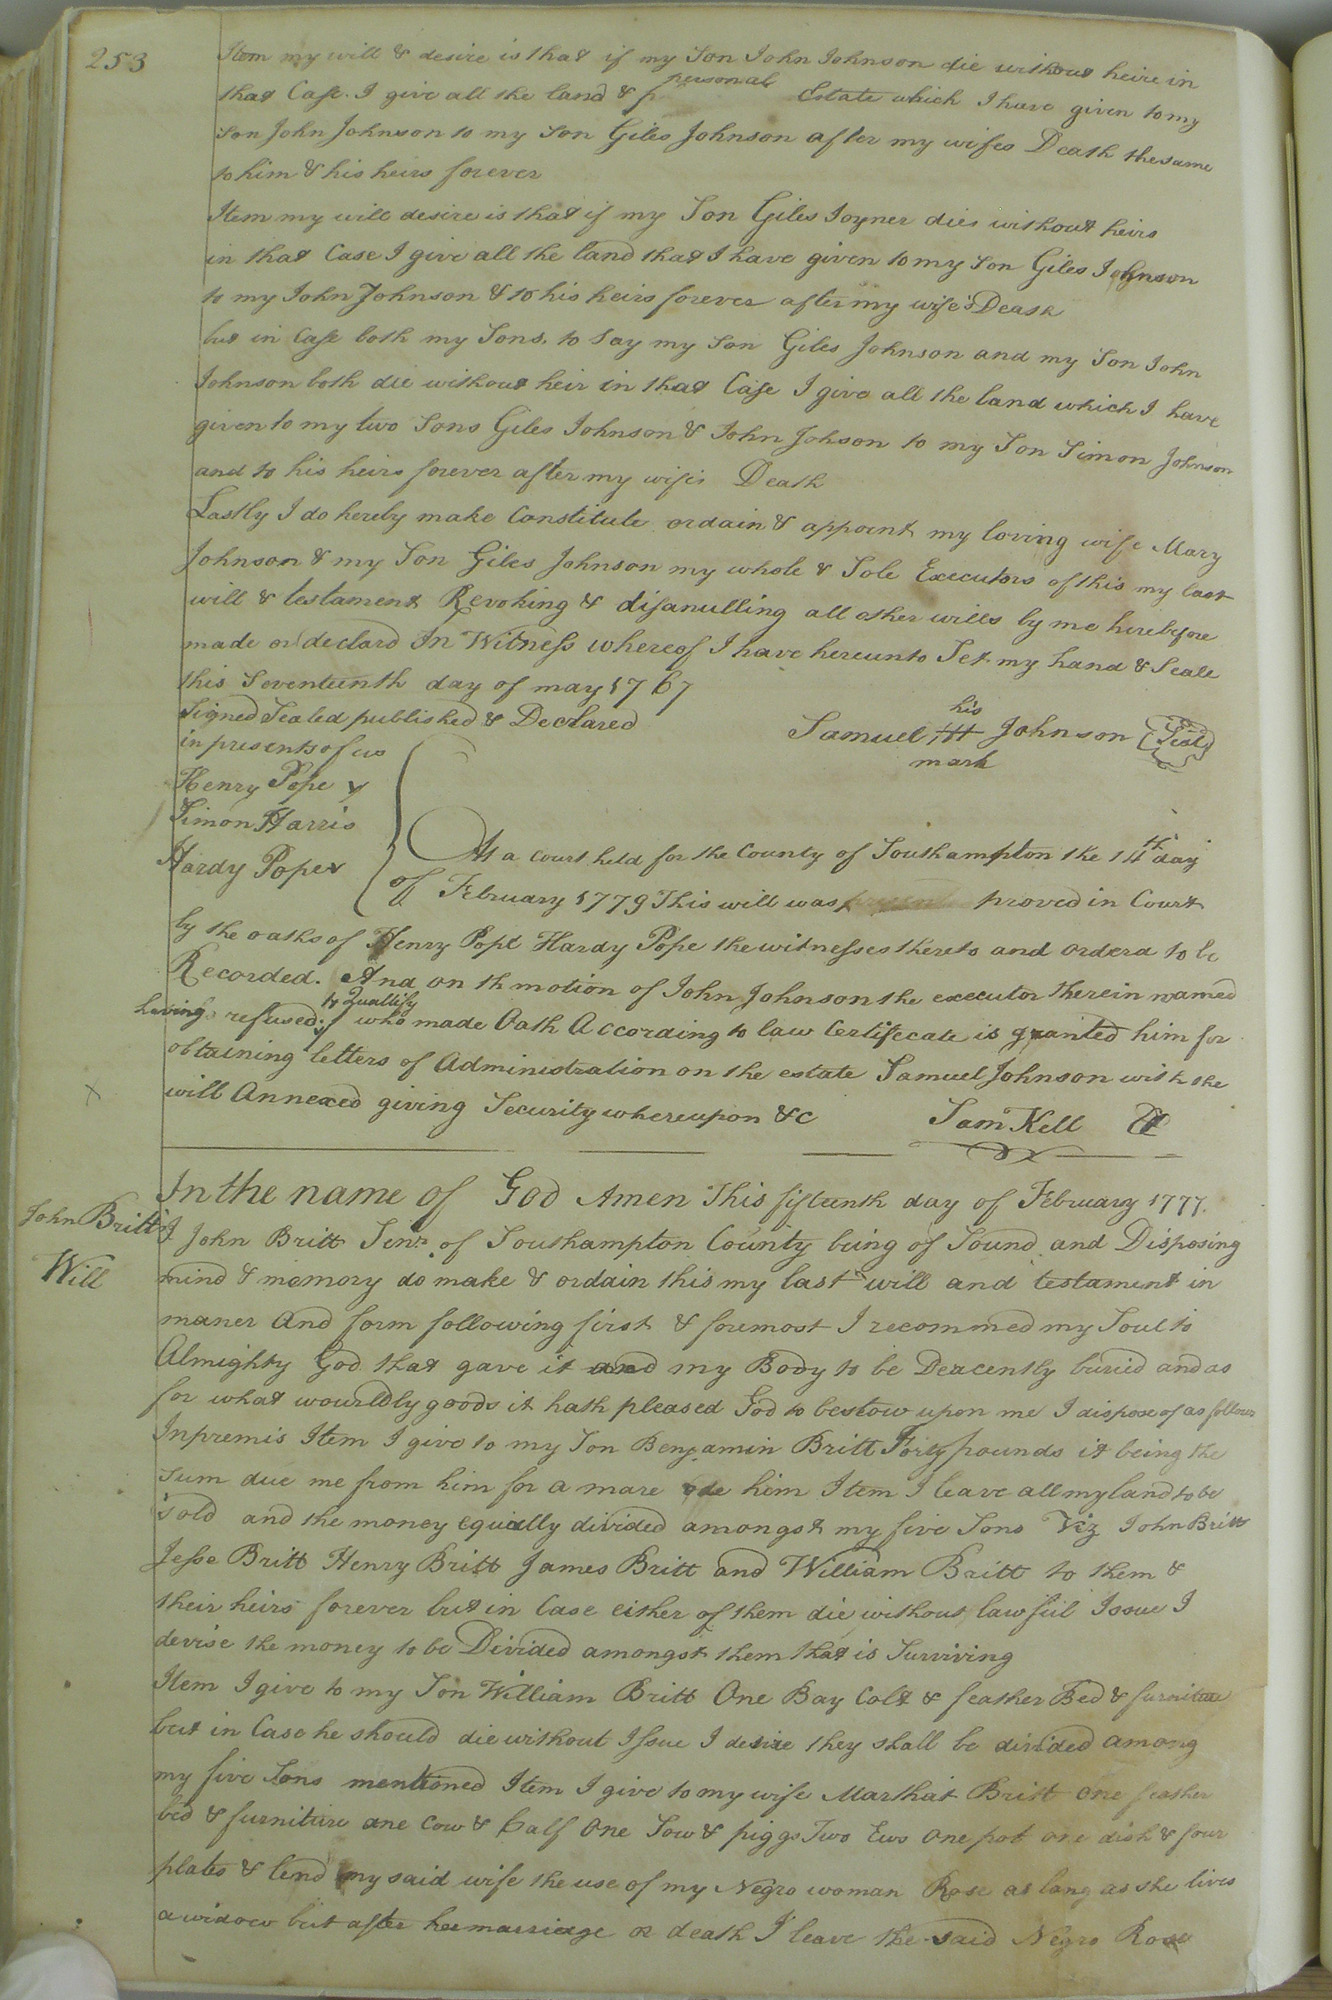 253
Item my will & desire is that if my Son John Johnson die without heire in
that Case. I give all the land & p personal Estate which I have given to my
Son John Johnson to my Son Giles Johnson after my wifes Death the same
to him & his heirs forever
Item my will desire is that if my Son Giles Joyner dies without heirs
in that Case I give all the land that I have given to my Son Giles Johnson
to my John Johnson & to his heirs forever after my wife's Dease
but in Case both my Sons. to Say my Son Giles Johnson and my Son John
Johnson both die without heir in that Case I give all the land which I have
given to my two Sons Giles Johnson & John Johson to my Son Simon Johnson
and to his heirs forever after my wifes Death
Lastly I do hereby make Constitute ordain & appoint my loving wife Mary
Johnson & my Son Giles Johnson my whole & Sole Executors of this my last
will & testament Revoking & disanulling all other wills by me herebefore
made or declard In Witness whereof I have hereunto Set my hand & Seale
this Seventeenth day of may 1767
Signed Sealed published & Declared
in presents of us
his
Samuel Johnson Seal
mark
Henry Pope
Simon Harris
Hardy Pope
At a court held for the County of Southampton the 14th day
of February 1779 This will was proved in Court
by the oaths of Henry Pope Hardy Pope the witnesses thereto and orderd to be
Recorded. And on th motion of John Johnson the executor therein named
having refused to Quallify who made Oath According to law Certifecate is granted him for
obtaining letters of Administration on the estate Samuel Johnson with the
will Annexed giving Security whereupon &c Sam Kell
John Britt's
Will
In the name of God Amen This fifteenth day of February 1777.
I John Britt Senr. of Southampton County being of Sound and Disposing
mind & momory do make & ordain this my last will and testament in
maner And form following first & foremost I recommed my Soul to
Almighty God that gave it and my Body to be Deacently buried and as
for what wourldly goods it hath pleased God to bestow upon me I dispose of as follows
Inpremis Item I give to my Son Benjamin Britt Forty pounds it being the
sum due me from him for a mare him Item I leave all my land to be
Sold and the money equially divided amongst my five Sons Viz John Britt
Jesse Britt Henry Britt James Britt and William Britt to them &
their heirs forever but in Case either of them die without lawfull Issue I
devise the money to be Divided amongst them that is Surviving
Item I give to my Son William Britt One Bay Colt & feather Bed & furniture
but in Case he should die without Issue I desire they shall be divided among
my five Sons mentioned Item I give to my wife Marthat Britt one feather
bed & furniture one Cow & Calf One Sow & piggs Two Ews One pot one dish & four
plates & lend my said wife the use of my Negro woman Rose as long as she lives
a widow but after her marriage or death I leave the said Negro Rose